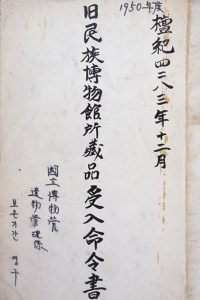 1950年度
檀紀四二八三年十二月
旧民族博物館所蔵品受入命令書
國立博物館
遺物管理係
보존기간 영구